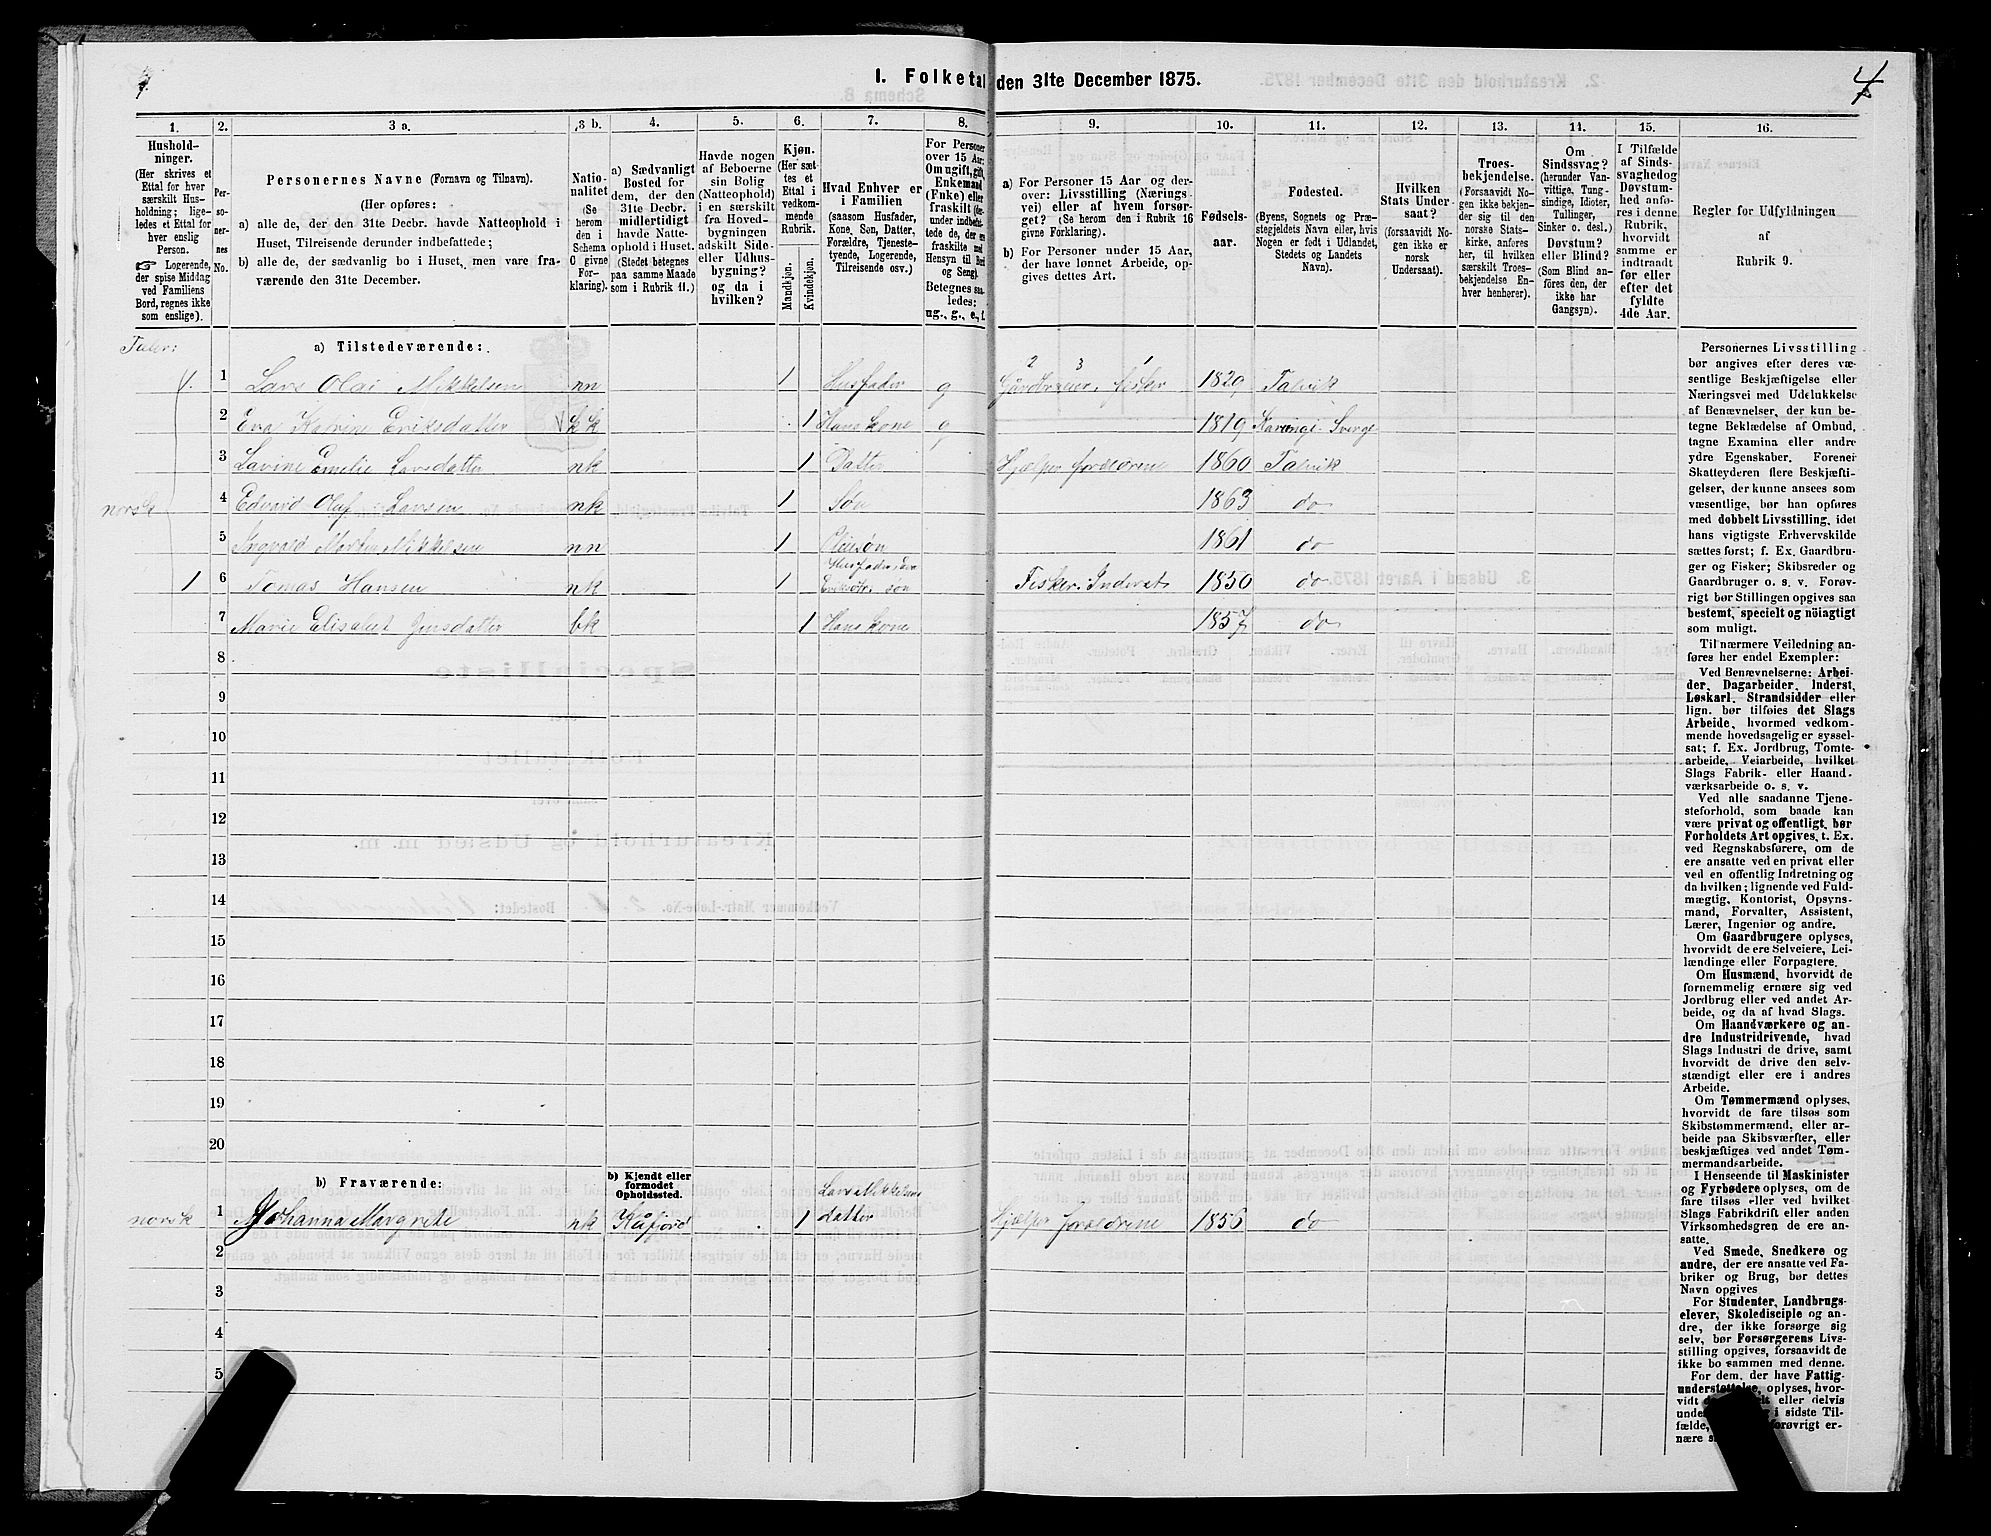 4
I. Folketal den 31te December 1875.
1. 2. 3 a. 3 b. 4. 5. 6. 7. 8. 9. 10. 11. 12. 13. 14. 15. 16.
Hushold-
ninger.
(Her skrives et
Ettal for hver
særskilt Hus-
holdning; lige-
ledes et Ettal for
hver enslig
Person.
☞ Logerende,
der spise Middag
ved Familiens
Bord, regnes ikke
som enslige).
Per-
so-
ner-
nes
No.
Personernes Navne (Fornavn og Tilnavn).
(Her opføres:
a) alle de, der den 31te Decbr. havde Natteophold i
Huset, Tilreisende derunder indbefattede;
b) alle de, der sædvanlig bo i Huset, men vare fra-
værende den 31te December.
Natio-
nalitet
(Se
herom
den i
Schema
C givne
For-
klaring).
a) Sædvanligt
Bosted for
dem, der den
31te Decbr.
midlertidigt
havde Natte-
ophold i Huset.
(Stedet betegnes
paa samme Maade
som i Rubrik 11.)
Havde nogen
af Beboerne
sin Bolig
(Natteophold)
i en særskilt
fra Hoved-
bygningen
adskilt Side-
eller Udhus-
bygning?
og da i
hvilken?
Kjøn.
(Her sæt-
tes et
Ettal i
vedkom-
mende
Rubrik.
Mandkjøn.
Kvindekjøn.
Hvad Enhver er
i Familien
(saasom Husfader,
Kone, Søn, Datter,
Forældre, Tjeneste-
tyende, Logerende,
Tilreisende osv.)
For Personer
over 15 Aar:
Om ugift, gift,
Enkemand
(Enke) eller
fraskilt (der-
under indbefat-
tede de, der ere
fraskilte med
Hensyn til Bord
og Seng).
Betegnes saa-
ledes:
ug., g., e., f.
a) For Personer 15 Aar og der-
over: Livsstilling (Nærings-
vei) eller af hvem forsør-
get? (Se herom den i Rubrik 16
givne Forklaring).
b) For Personer under 15 Aar,
der have lønnet Arbeide, op-
gives dettes Art.
Fødsels-
aar.
Fødested.
(Byens, Sognets og Præ-
stegjeldets Navn eller, hvis
Nogen er født i Udlandet,
Stedets og Landets
Navn).
Hvilken
Stats Under-
saat?
(forsaavidt No-
gen ikke er
norsk
Undersaat).
Troes-
bekjendelse.
(Forsaavidt No-
gen ikke bekjen-
der sig til den
norske Stats-
kirke, anføres
her, til hvilken
særskilt Troes-
bekjendelse En-
hver henhører).
Om
Sindssvag?
(herunder Van-
vittige, Tung-
sindige, Idioter,
Tullinger,
Sinker o. desl.)
Døvstum?
eller Blind?
(Som Blind an-
føres den, der
ikke har
Gangsyn).
I Tilfælde
af Sinds-
svaghed og
Døvstum-
hed anfø-
res i denne
Rubrik,
hvorvidt
samme er
indtraadt
før eller
efter det
fyldte
4de Aar.
Regler for Udfyldningen
af
Rubrik 9.
a) Tilstedeværende:
2 3 1
1 Lars Olai Mikkelsen nn 1 Husfader g Gårdbruger, fisker 1829 Talvik
2 Eva Katrine Eriksdatter kk 1 Hans kone g 1819 Karungi Sverge
3 Lavine Emelie Larsdatter nk 1 Datter Hjælper foreldrene 1860 Talvik
norsk
4 Edvard Olaf Larsen nk 1 Søn 1863 do
5 Ingvald Morten Mikkelsen nn 1 Pleiesøn 1861 do
1 6 Tomas Hansen nk 1 Fisker. Inderst 1850 do
7 Marie Elisabet Jensdatter bk 1 Hans kone 1857 do
8
9
10
11
12
13
14
15
16
17
18
19
20
b) Fraværende:
b) Kjendt eller
formodet
Opholdssted.
Lars Mikkelsens
norsk 1 Johanna Margrete nk Kåfjord 1 datter Hjælper foreldrene 1856 do
2
3
4
5
Personernes Livsstilling
bør angives efter deres væ-
sentlige Beskjæftigelse eller
Næringsvei med Udelukkelse
af Benævnelser, der kun be-
tegne Beklædelse af Ombud,
tagne Examina eller andre
ydre Egenskaber. Forener
Skatteyderen flere Beskjæfti-
gelser, der kunne ansees som
væsentlige, bør han opføres
med dobbelt Livsstilling, idet
hans vigtigste Erhvervskilde
sættes først; f. Ex. Gaardbru-
ger og Fisker; Skibsreder og
Gaardbruger o. s. v. Forøv-
rigt bør Stillingen opgives saa
bestemt, specielt og nöiagtigt
som muligt.
Til nærmere Veiledning an-
føres her endel Exempler:
Ved Benævnelserne: Arbei-
der, Dagarbeider, Inderst,
Løskarl, Strandsidder eller
lign. bør tilføies det Slags
Arbeide, hvormed vedkom-
mende hovedsagelig er syssel-
sat; f. Ex. Jordbrug, Tomte-
arbeide, Veiarbeide, hvilket
Slags Fabrik- eller Haand-
værksarbeide o. s. v.
Ved alle saadanne Tjene-
steforhold, som baade kan
være privat og offentligt, bør
Forholdets Art opgives, t. Ex.
ved Regnskabsførere, om de
ere ansatte ved en privat eller
ved en offentlig Indretning og
da hvilken; lignende ved Fuld-
mægtig, Kontorist, Opsyns-
mand, Forvalter, Assistent,
Lærer, Ingeniør og andre.
Om Gaardbrugere oplyses,
hvorvidt de ere Selveiere, Lei-
lændinge eller Forpagtere.
Om Husmænd, hvorvidt de
fornemmelig ernære sig ved
Jordbrug eller ved andet Ar-
beide, og da af hvad Slags.
Om Haandværkere og an-
dre Industridrivende, hvad
Slags Industri de drive, samt
hvorvidt de drive den selv-
stændigt eller ere i andres
Arbeide.
Om Tømmermænd oplyses,
hvorvidt de fare tilsøs som
Skibstømmermænd, eller ar-
beide paa Skibsværfter, eller
beskjæftiges ved andet Tøm-
mermandsarbeide.
I Henseende til Maskinister
og Fyrbødere oplyses, om de
fare tilsøs eller ved hvilket
Slags Fabrikdrift eller anden
Virksomhedsgren de ere an-
satte.
Ved Smede, Snedkere og
andre, der ere ansatte ved Fa-
briker og Brug, bør dettes
Navn opgives
For Studenter, Landbrugs-
elever, Skoledisciple og an-
dre, der ikke forsørge sig
selv, bør Forsørgerens Livs-
stilling opgives, forsaavidt de
ikke bo sammen med denne.
For dem, der have Fattig-
understøttelse, oplyses, hvor-
vidt eller delvis
i sidste Til-
fælde, forøvrigt er-
nære